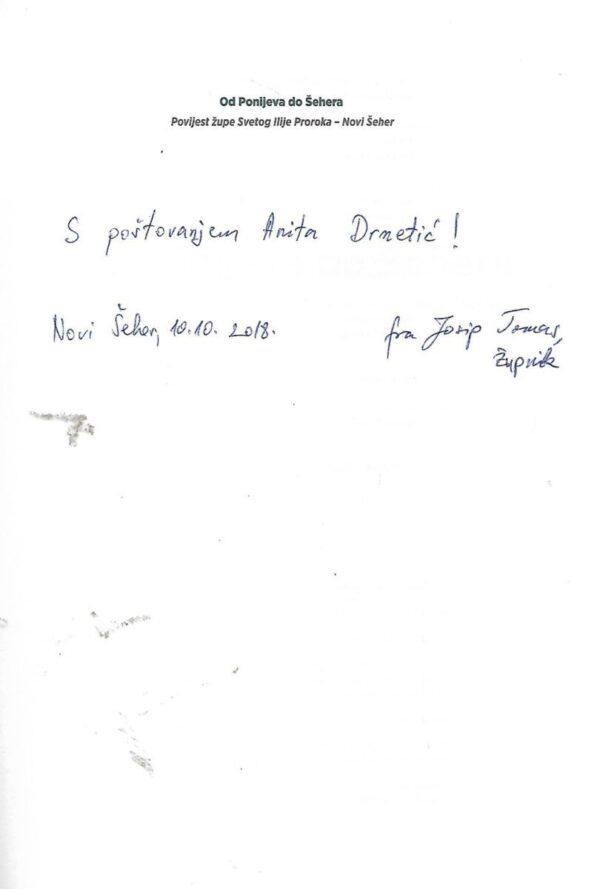 Od Ponijeva do Šehera
Povijest župe Svetog Ilije Proroka – Novi Šeher
S poštovanjem Anita Drmetić!
Novi Šeher, 10.10. 2018.
fra Josip Tomas,
župnik